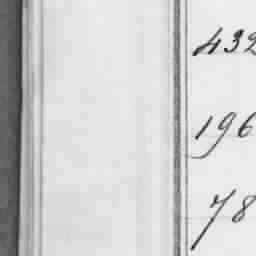 432
196
78